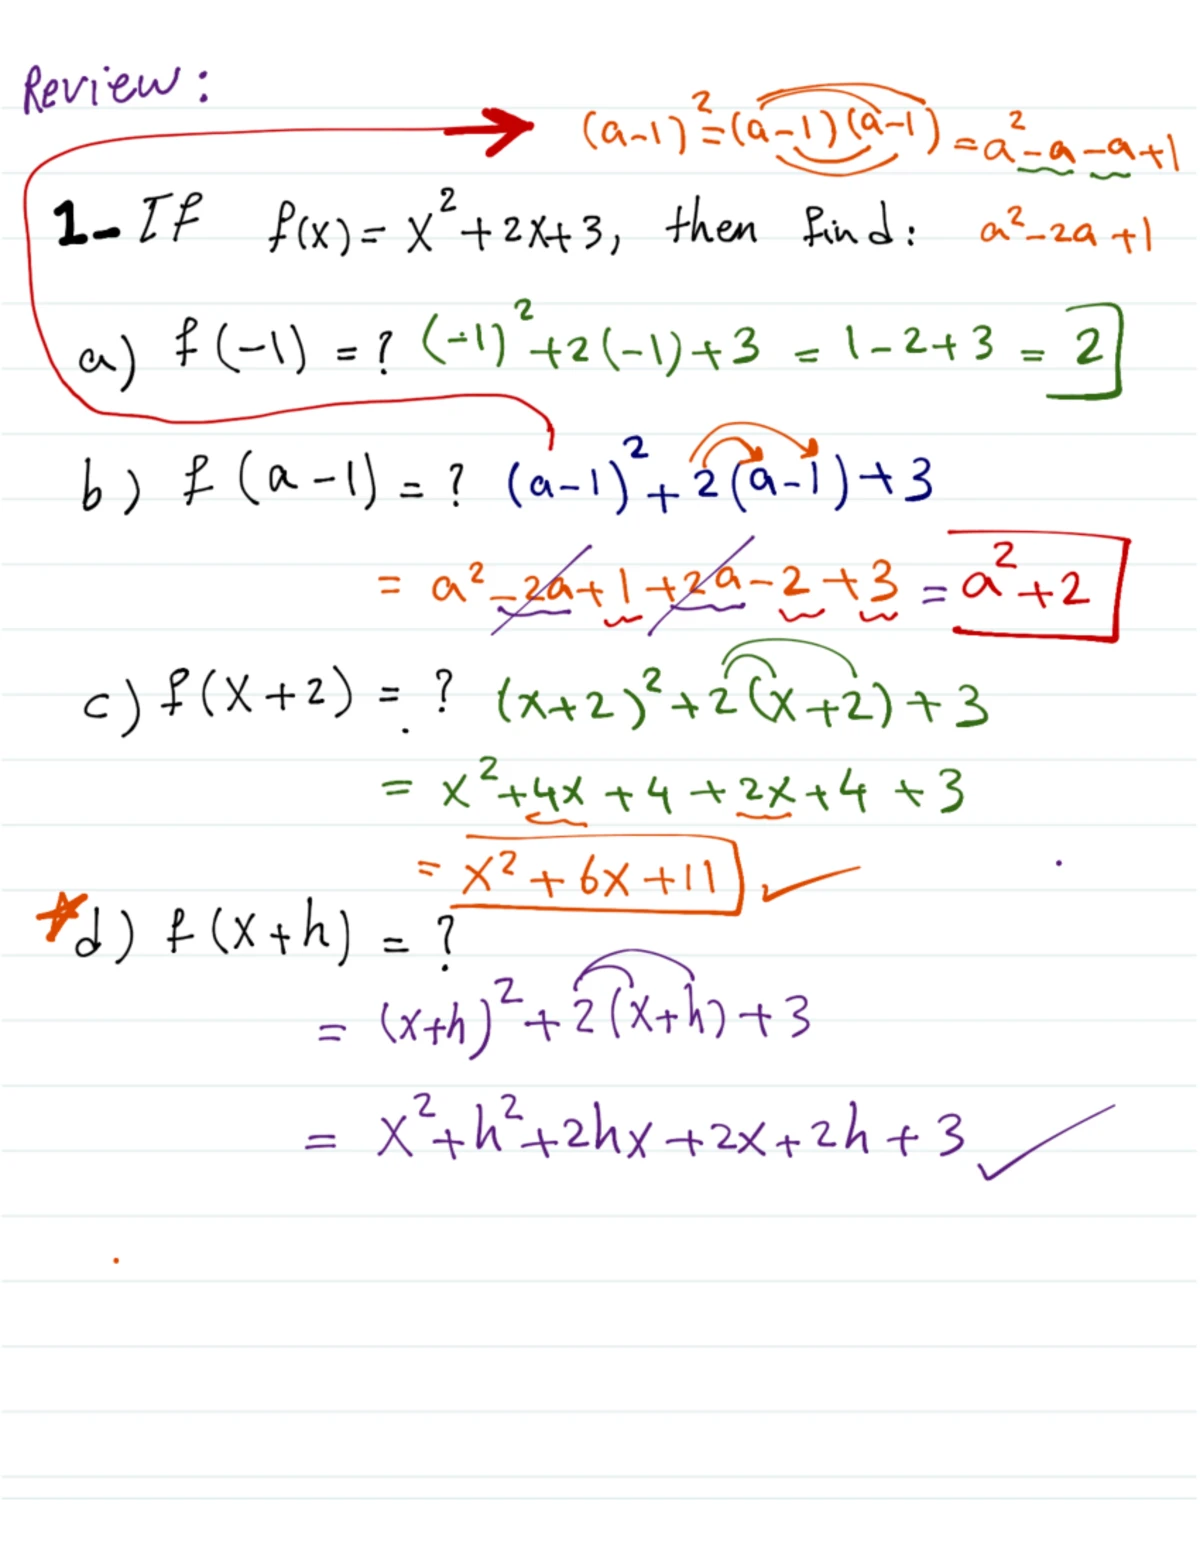 Review:
(a-1)²=(a-1)(a-1)=a²-a-a+1
1- If f(x)= x²+2x+3, then find: a²-2a+1
a) f(-1) = ? (-1)²+2(-1)+3 = 1-2+3 = 2
b) f(a-1) = ? (a-1)²+2(a-1)+3
= a²-2a+1+2a-2+3 = a²+2
c) f(x+2) = ? (x+2)²+2(x+2)+3
= x²+4x+4+2x+4+3
= x²+6x+11
d) f(x+h) = ?
= (x+h)²+2(x+h)+3
= x²+h²+2hx+2x+2h+3